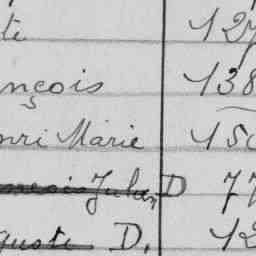 te 127
nçois 138
nri Marie 150
nçois Jules D 77
guste D. 12